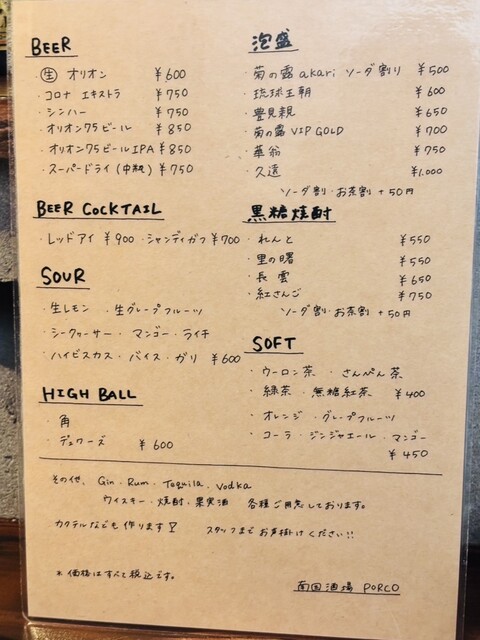 BEER
・㊃ オリオン ￥600
・コロナ エキストラ ￥750
・シンハー ￥750
・オリオン75ビール ￥850
・オリオン75ビールIPA ￥850
・スーパードライ (中瓶) ￥750
BEER COCKTAIL
・レッドアイ ￥900 ・シャンディガフ ￥700
SOUR
・生レモン ・生グレープフルーツ
・シークヮーサー・マンゴー・ライチ
・ハイビスカス・バイス・ガリ ￥600
HIGH BALL
・角
・デュワーズ ￥600
泡盛
・菊の露 akari ソーダ割り ￥500
・琉球王朝 ￥600
・豊見親 ￥650
・菊の露 VIP GOLD ￥700
・華翁 ￥750
・久遠 ￥1.000
ソーダ割・お茶割 +50円
黒糖焼酎
・れんと ￥550
・里の曙 ￥550
・長雲 ￥650
・紅さんご ￥750
ソーダ割・お茶割 +50円
SOFT
・ウーロン茶 ・さんぴん茶
・緑茶 ・無糖紅茶 ￥400
・オレンジ ・グレープフルーツ
・コーラ・ジンジャエール・マンゴー
￥450
その他、Gin・Rum・Tequila・Vodka
ウィスキー・焼酎・果実酒 各種ご用意しております。
カクテルなども作ります スタッフまでお声掛けください!!
*価格はすべて税込です。
南国酒場 PORCO